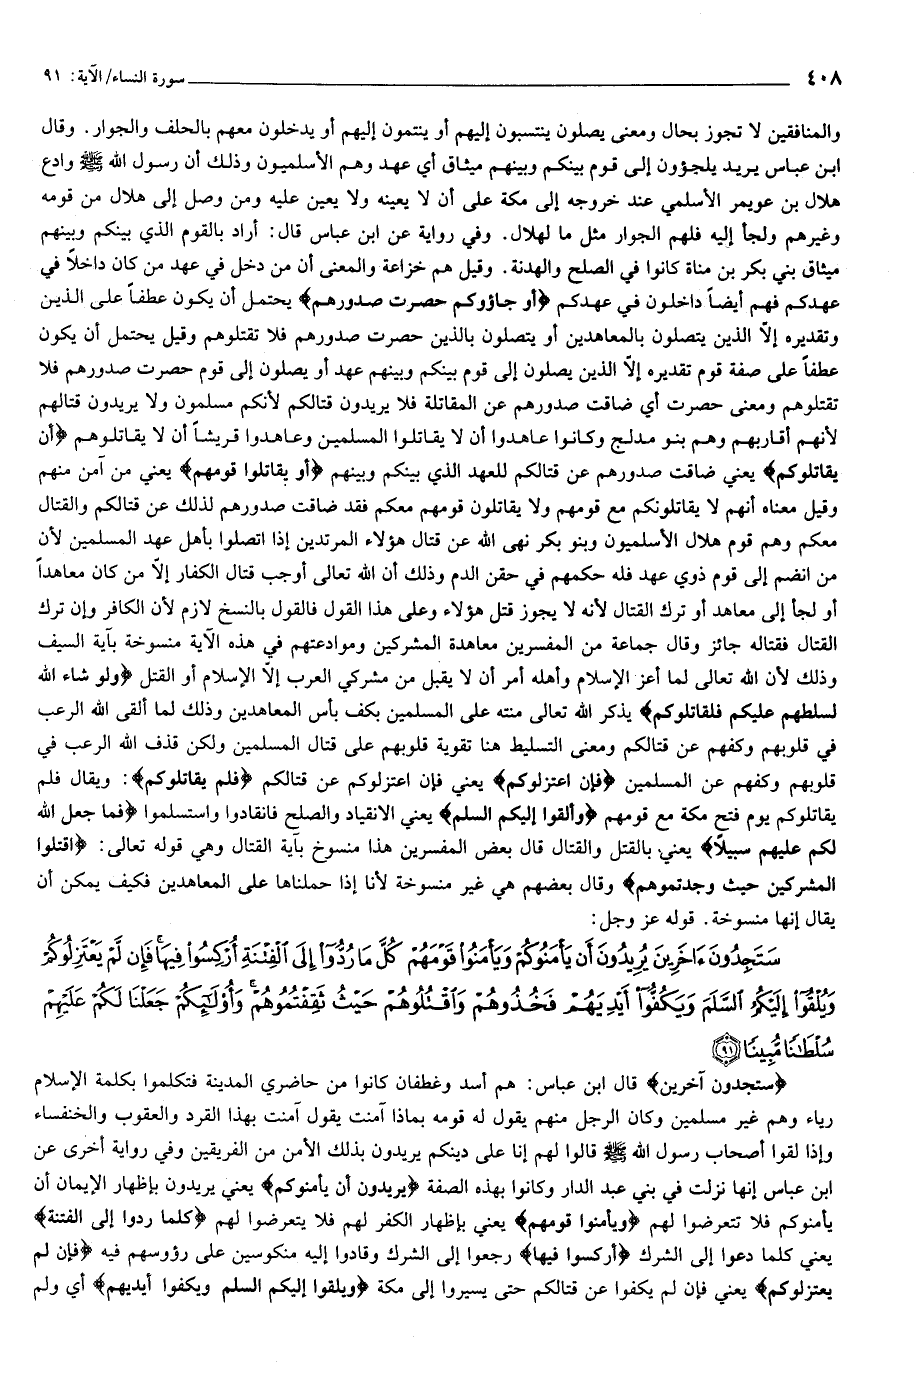 ٤٠٨ سورة النساء/ الآية: ٩١
والمنافقين لا تجوز بحال ومعنى يصلون ينتسبون إليهم أو ينتمون إليهم أو يدخلون معهم بالحلف والجوار. وقال
ابن عباس يريد يلجؤون إلى قوم بينكم وبينهم ميثاق أي عهد وهم الأسلميون وذلك أن رسول الله ﷺ وادع
هلال بن عويمر الأسلمي عند خروجه إلى مكة على أن لا يعينه ولا يعين عليه ومن وصل إلى هلال من قومه
وغيرهم ولجأ إليه فلهم الجوار مثل ما لهلال. وفي رواية عن ابن عباس قال: أراد بالقوم الذي بينكم وبينهم
ميثاق بني بكر بن مناة كانوا في الصلح والهدنة. وقيل هم خزاعة والمعنى أن من دخل في عهد من كان داخلاً في
عهدكم فهم أيضاً داخلون في عهدكم ﴿أو جاؤوكم حصرت صدورهم﴾ يحتمل أن يكون عطفاً على الذين
وتقديره إلاّ الذين يتصلون بالمعاهدين أو يتصلون بالذين حصرت صدورهم فلا تقتلوهم وقيل يحتمل أن يكون
عطفاً على صفة قوم تقديره إلاّ الذين يصلون إلى قوم بينكم وبينهم عهد أو يصلون إلى قوم حصرت صدورهم فلا
تقتلوهم ومعنى حصرت أي ضاقت صدورهم عن المقاتلة فلا يريدون قتالكم لأنكم مسلمون ولا يريدون قتالهم
لأنهم أقاربهم وهم بنو مدلج وكانوا عاهدوا أن لا يقاتلوا المسلمين وعاهدوا قريشاً أن لا يقاتلوهم ﴿أن
يقاتلوكم﴾ يعني ضاقت صدورهم عن قتالكم للعهد الذي بينكم وبينهم ﴿أو يقاتلوا قومهم﴾ يعني من آمن منهم
وقيل معناه أنهم لا يقاتلونكم مع قومهم ولا يقاتلون قومهم معكم فقد ضاقت صدورهم لذلك عن قتالكم والقتال
معكم وهم قوم هلال الأسلميون وبنو بكر نهى الله عن قتال هؤلاء المرتدين إذا اتصلوا بأهل عهد المسلمين لأن
من انضم إلى قوم ذوي عهد فله حكمهم في حقن الدم وذلك أن الله تعالى أوجب قتال الكفار إلاّ من كان معاهداً
أو لجأ إلى معاهد أو ترك القتال لأنه لا يجوز قتل هؤلاء وعلى هذا القول فالقول بالنسخ لازم لأن الكافر وإن ترك
القتال فقتاله جائز وقال جماعة من المفسرين معاهدة المشركين وموادعتهم في هذه الآية منسوخة بآية السيف
وذلك لأن الله تعالى لما أعز الإسلام وأهله أمر أن لا يقبل من مشركي العرب إلاّ الإسلام أو القتل ﴿ولو شاء الله
لسلطهم عليكم فلقاتلوكم﴾ يذكر الله تعالى منته على المسلمين بكف بأس المعاهدين وذلك لما ألقى الله الرعب
في قلوبهم وكفهم عن قتالكم ومعنى التسليط هنا تقوية قلوبهم على قتال المسلمين ولكن قذف الله الرعب في
قلوبهم وكفهم عن المسلمين ﴿فإن اعتزلوكم﴾ يعني فإن اعتزلوكم عن قتالكم ﴿فلم يقاتلوكم﴾: ويقال فلم
يقاتلوكم يوم فتح مكة مع قومهم ﴿وألقوا إليكم السلم﴾ يعني الانقياد والصلح فانقادوا واستسلموا ﴿فما جعل الله
لكم عليهم سبيلاً﴾ يعني بالقتل والقتال قال بعض المفسرين هذا منسوخ بآية القتال وهي قوله تعالى: ﴿اقتلوا
المشركين حيث وجدتموهم﴾ وقال بعضهم هي غير منسوخة لأنا إذا حملناها على المعاهدين فكيف يمكن أن
يقال إنها منسوخة. قوله عز وجل:
سَتَجِدُونَ ءَاخَرِينَ يُرِيدُونَ أَن يَأْمَنُوكُمْ وَيَأْمَنُوا۟ قَوْمَهُمْ كُلَّ مَا رُدُّوٓا۟ إِلَى ٱلْفِتْنَةِ أُرْكِسُوا۟ فِيهَاۚ فَإِن لَّمْ يَعْتَزِلُوكُمْ
وَيُلْقُوٓا۟ إِلَيْكُمُ ٱلسَّلَمَ وَيَكُفُّوٓا۟ أَيْدِيَهُمْ فَخُذُوهُمْ وَٱقْتُلُوهُمْ حَيْثُ ثَقِفْتُمُوهُمْۚ وَأُو۟لَٰٓئِكُمْ جَعَلْنَا لَكُمْ عَلَيْهِمْ
سُلْطَٰنًا مُّبِينًا ٩١
﴿ستجدون آخرين﴾ قال ابن عباس: هم أسد وغطفان كانوا من حاضري المدينة فتكلموا بكلمة الإسلام
رياء وهم غير مسلمين وكان الرجل منهم يقول له قومه بماذا آمنت يقول آمنت بهذا القرد والعقوب والخنفساء
وإذا لقوا أصحاب رسول الله ﷺ قالوا لهم إنا على دينكم يريدون بذلك الأمن من الفريقين وفي رواية أخرى عن
ابن عباس إنها نزلت في بني عبد الدار وكانوا بهذه الصفة ﴿يريدون أن يأمنوكم﴾ يعني يريدون بإظهار الإيمان أن
يأمنوكم فلا تتعرضوا لهم ﴿ويأمنوا قومهم﴾ يعني بإظهار الكفر لهم فلا يتعرضوا لهم ﴿كلما ردوا إلى الفتنة﴾
يعني كلما دعوا إلى الشرك ﴿أركسوا فيها﴾ رجعوا إلى الشرك وقادوا إليه منكوسين على رؤوسهم فيه ﴿فإن لم
يعتزلوكم﴾ يعني فإن لم يكفوا عن قتالكم حتى يسيروا إلى مكة ﴿ويلقوا إليكم السلم ويكفوا أيديهم﴾ أي ولم